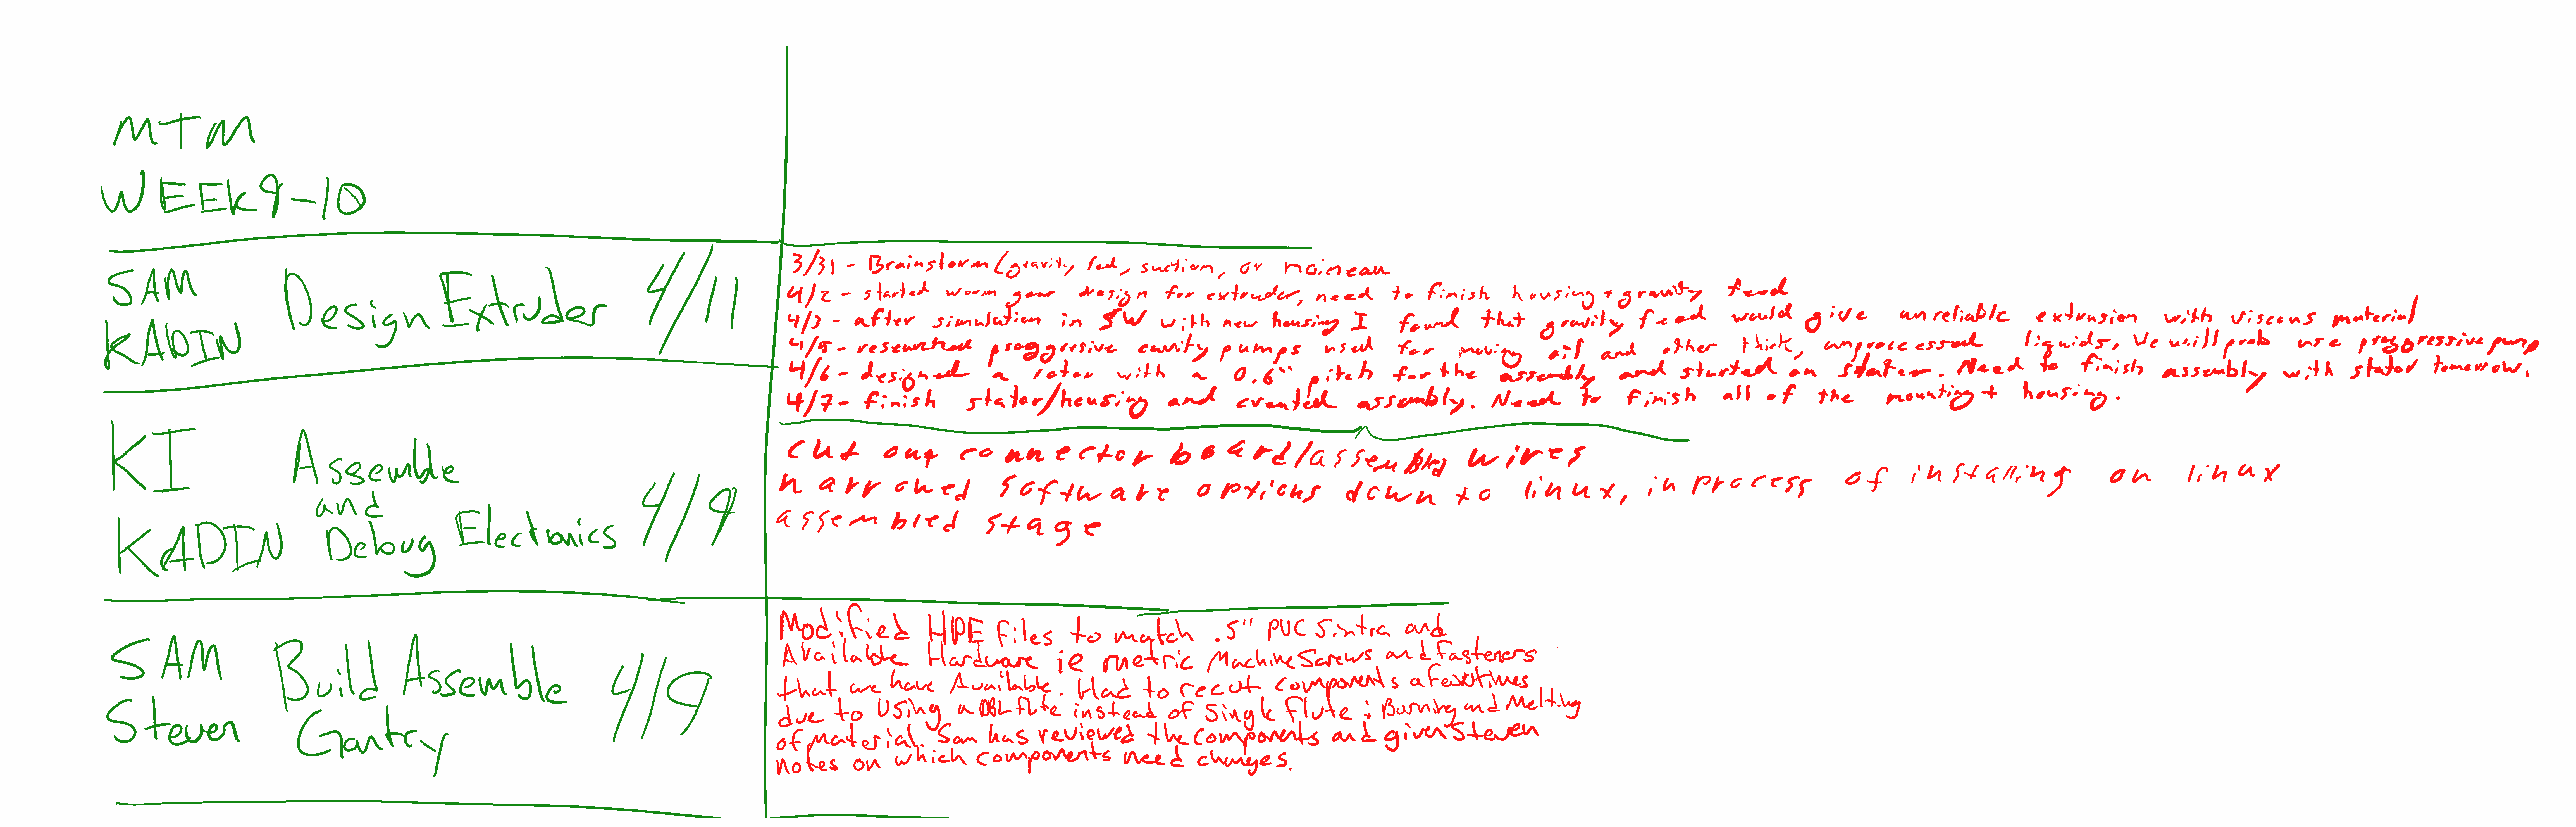 MTM
WEEK 9-10
SAM
KADIN
Design Extruder 4/11
3/31 - Brainstorm (gravity fed, suction, or moineau
4/2 - started worm gear design for extruder, need to finish housing + gravity feed
4/3 - after simulation in SW with new housing I found that gravity feed would give unreliable extrusion with viscous material
4/5 - researched proggresive cavity pumps used for moving oil and other thick, unprocessed liquids. We will prob use proggressive pump
4/6 - designed a rotor with a 0.6" pitch for the assembly and started on stator. Need to finish assembly with stator tomorrow.
4/7 - finish stator/housing and created assembly. Need to finish all of the mounting + housing.
KI
KADIN
Assemble
and
Debug Electronics 4/9
cut out connector board/assembled wires
narrowed software options down to linux, in process of installing on linux
assembled stage
SAM
Steven
Build Assemble
Gantry
4/9
Modified HPE files to match .5" PVC Sintra and
Available Hardware ie metric Machine Screws and fasteners
that we have Available. Had to recut components a few times
due to Using a DBL flute instead of Single flute : Burning and Melting
of material. Sam has reviewed the components and given Steven
notes on which components need changes.